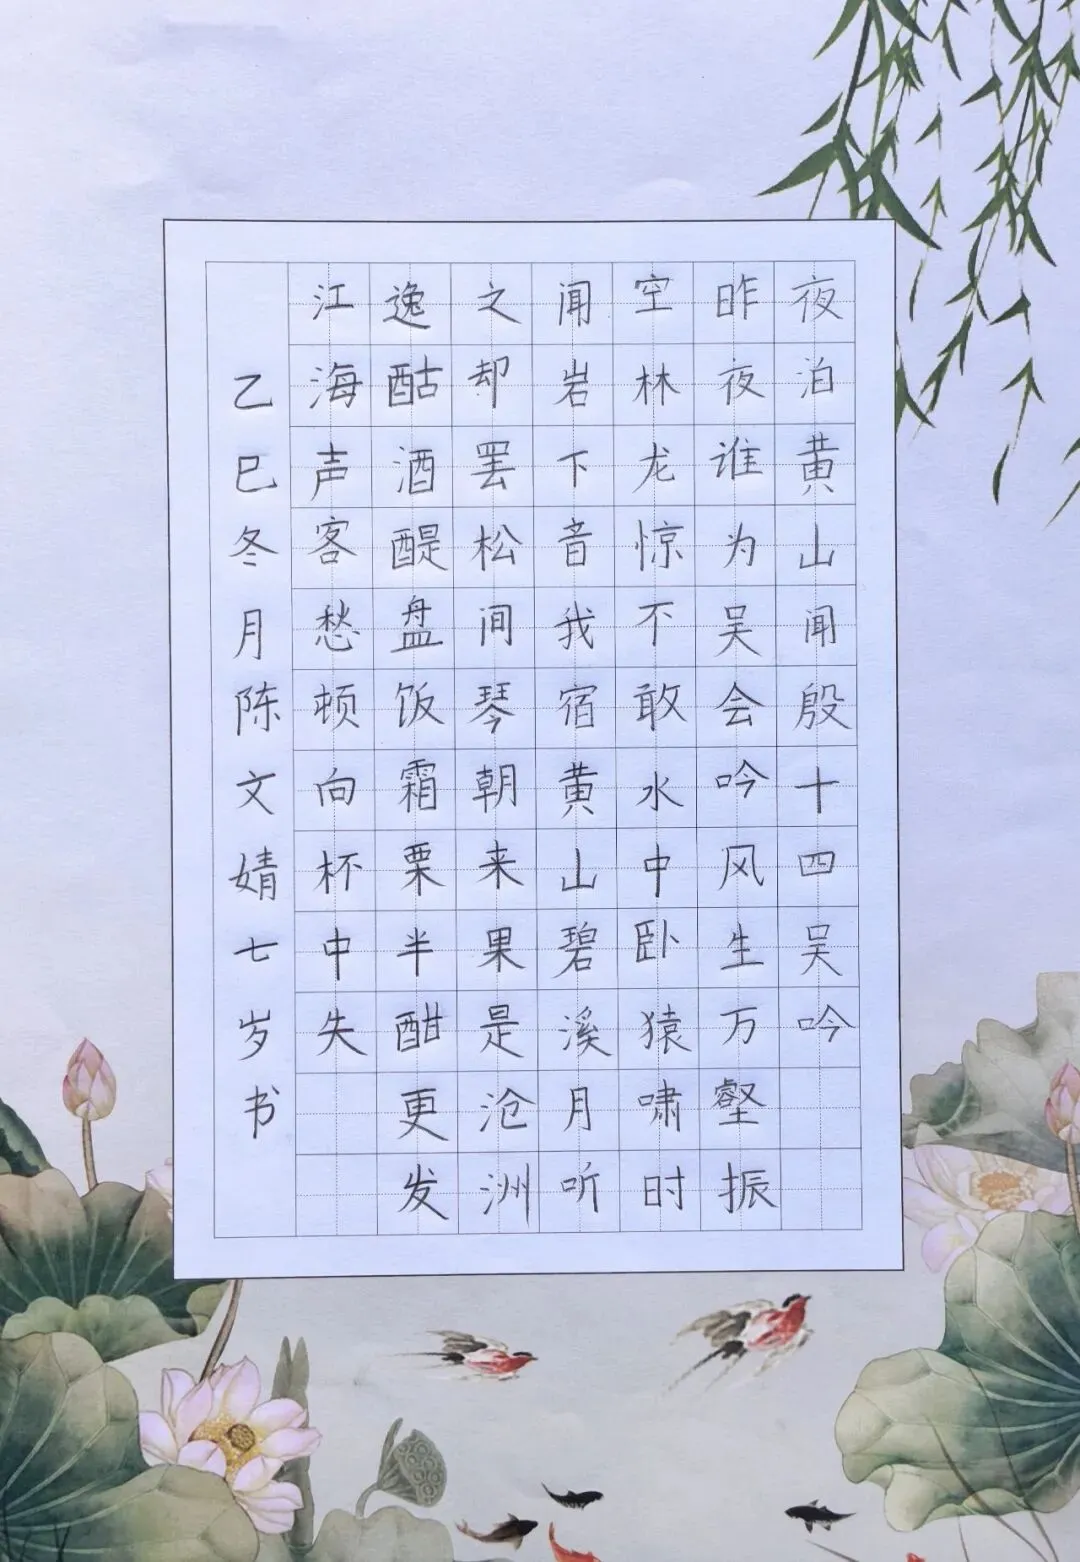 夜泊黄山闻殷十四吴吟
昨夜谁为吴会吟风生万壑振
空林龙惊不敢水中卧猿啸时
闻岩下音我宿黄山碧溪月听
之却罢松间琴朝来果是沧洲
逸酤酒醍盘饭霜栗半酣更发
江海声客愁顿向杯中失
乙巳冬月陈文婧七岁书